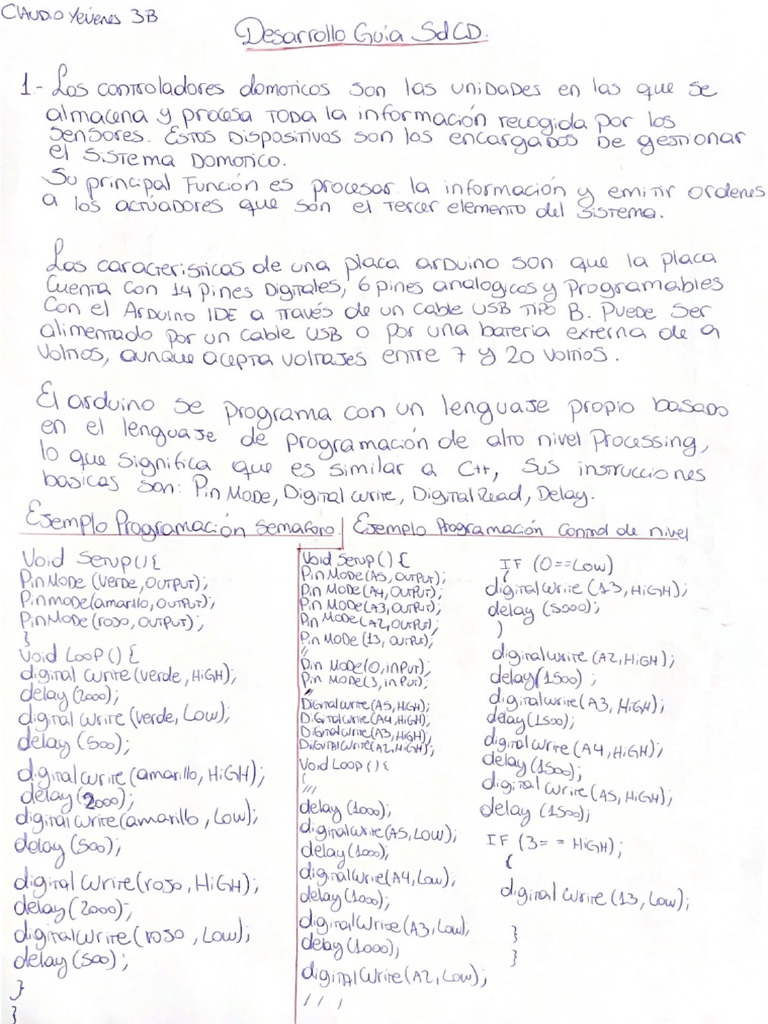 Claudio Yevenes 3B
Desarrollo Guia SdCD.
1.- Los controladores domoticos son las unidades en las que se
almacena y procesa toda la información recogida por los
sensores. Estos dispositivos son los encargados de gestionar
el sistema domotico.
Su principal función es procesar la información y emitir ordenes
a los actuadores que son el tercer elemento del sistema.
Las caracteristicas de una placa arduino son que la placa
cuenta con 14 pines digitales, 6 pines analogicos y programables
con el Arduino IDE a través de un cable USB tipo B. Puede ser
alimentado por un cable USB o por una bateria externa de 9
voltios, aunque acepta voltajes entre 7 y 20 voltios.
El arduino se programa con un lenguaje propio basado
en el lenguaje de programación de alto nivel Processing,
lo que significa que es similar a C++, sus instrucciones
basicas son: Pin Mode, Digital write, Digital Read, Delay.
Ejemplo Programación Semaforo
Void Setup(){
PinMode (verde, OUTPUT);
Pinmode(amarillo, OUTPUT);
PinMode (rojo, OUTPUT);
}
Void Loop() {
digital write (verde, HIGH);
delay (2000);
digital write (verde, Low);
delay (500);
digital write (amarillo, HIGH);
delay (2000);
digital write(amarillo, Low);
delay (500);
digital write (rojo, HIGH);
delay (2000);
digitalwrite (rojo, Low);
delay (500);
}
}
Ejemplo Programación Control de nivel
Void Setup() {
Pin Mode (A5, OUTPUT);
Pin Mode (A4, OUTPUT);
Pin Mode (A3, OUTPUT);
Pin Mode (A2, OUTPUT);
Pin Mode (13, OUTPUT);
//
Pin Mode(0, inPut);
Pin Mode(3, in Put);
//
Digitalwrite (A5, HIGH);
Digitalwrite (A4, HIGH);
Digitalwrite (A3, HIGH);
Digitalwrite (A2, HIGH);
Void Loop () {
{
///
delay (1000);
digitalwrite (A5, Low);
delay (1000);
digitalwrite(A4, Low);
delay (1000);
digitalwrite (A3, Low),
delay (1000);
digitalwrite (A2, Low);
/ / /
IF (0==Low)
{
digitalwrite (13, HIGH);
delay (5000);
}
digitalwrite (A2, HIGH);
delay(1500) ;
digitalwrite (A3, HIGH);
delay(1500);
digitalwrite (A4, HIGH);
delay (1500);
digital write (A5, HIGH);
delay (1500);
IF (3= = HIGH);
{
digital write (13, Low);
}
}